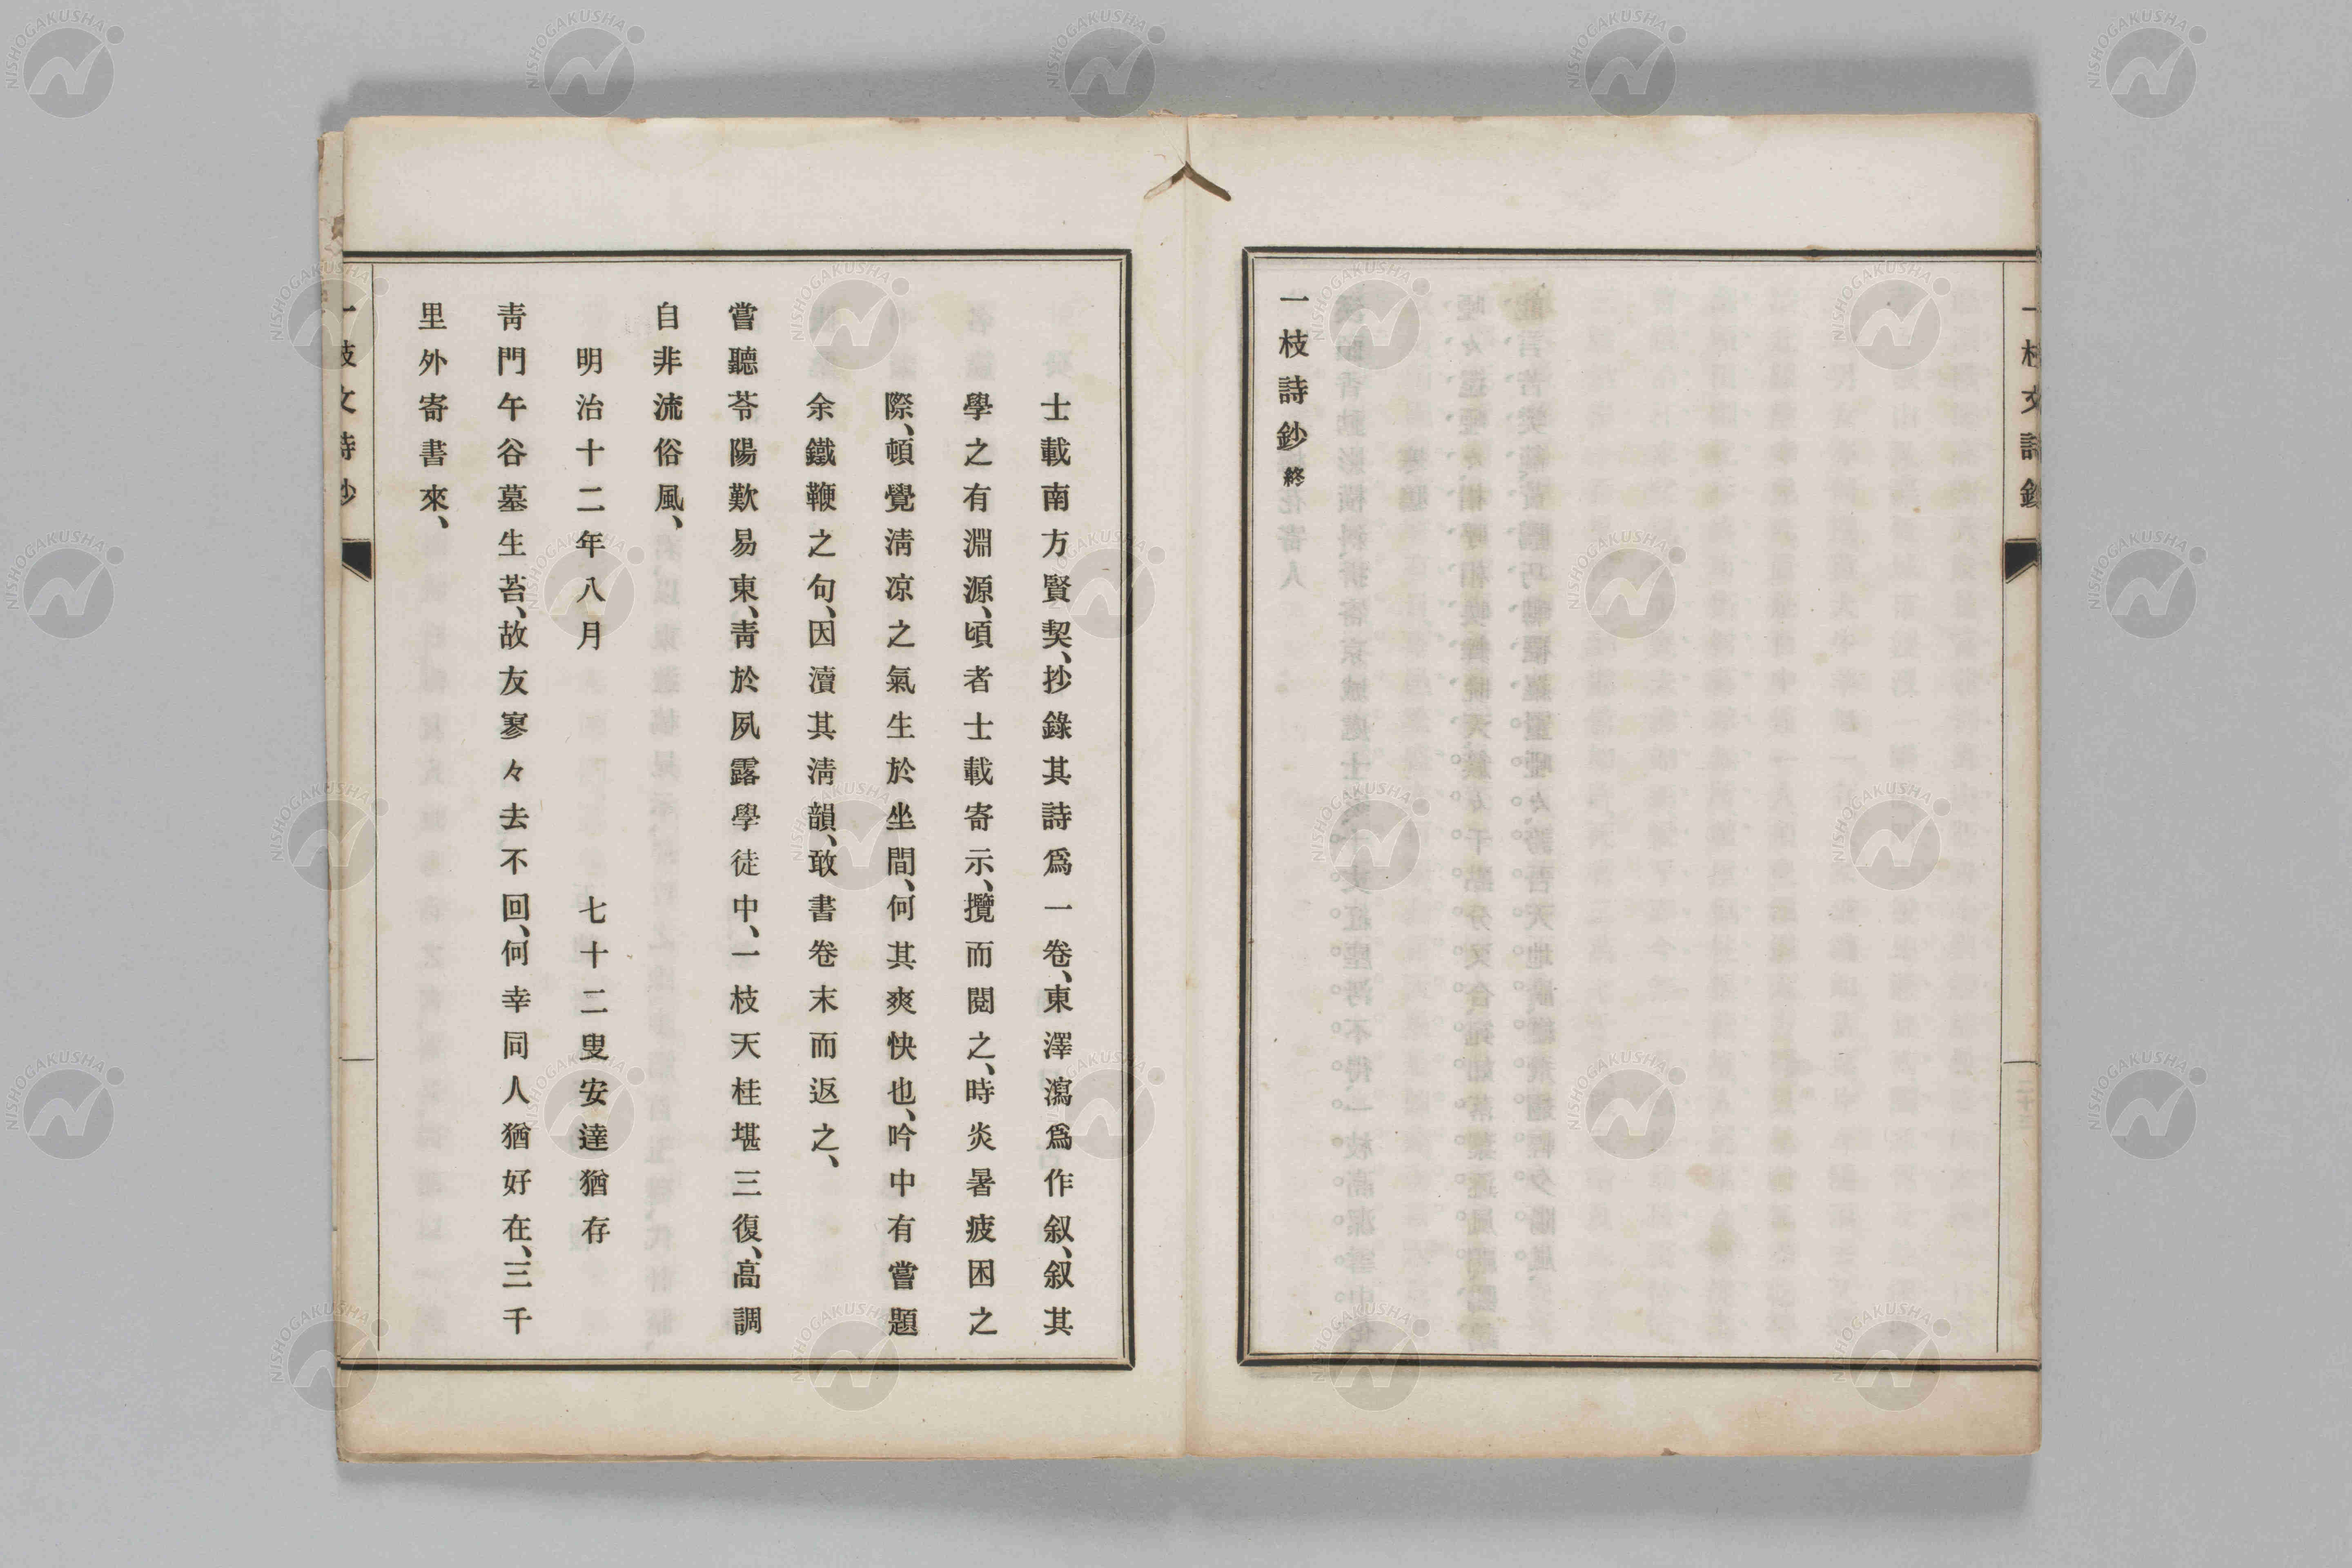 一枝詩鈔終
士載南方賢契、抄錄其詩爲一卷、東澤瀉爲作叙、叙其
學之有淵源、頃者士載寄示、攬而閱之、時炎暑疲困之
際、頓覺淸凉之氣生於坐間、何其爽快也、吟中有嘗題
余鐵鞭之句、因瀆其淸韻、敢書卷末而返之、
嘗聽苓陽歎易東、靑於夙露學徒中、一枝天桂堪三復、高調
自非流俗風、
明治十二年八月 七十二叟安達猶存
靑門午谷墓生苔、故友寥々去不回、何幸同人猶好在、三千
里外寄書來、
一枝文詩鈔
NISHOGAKUSHA